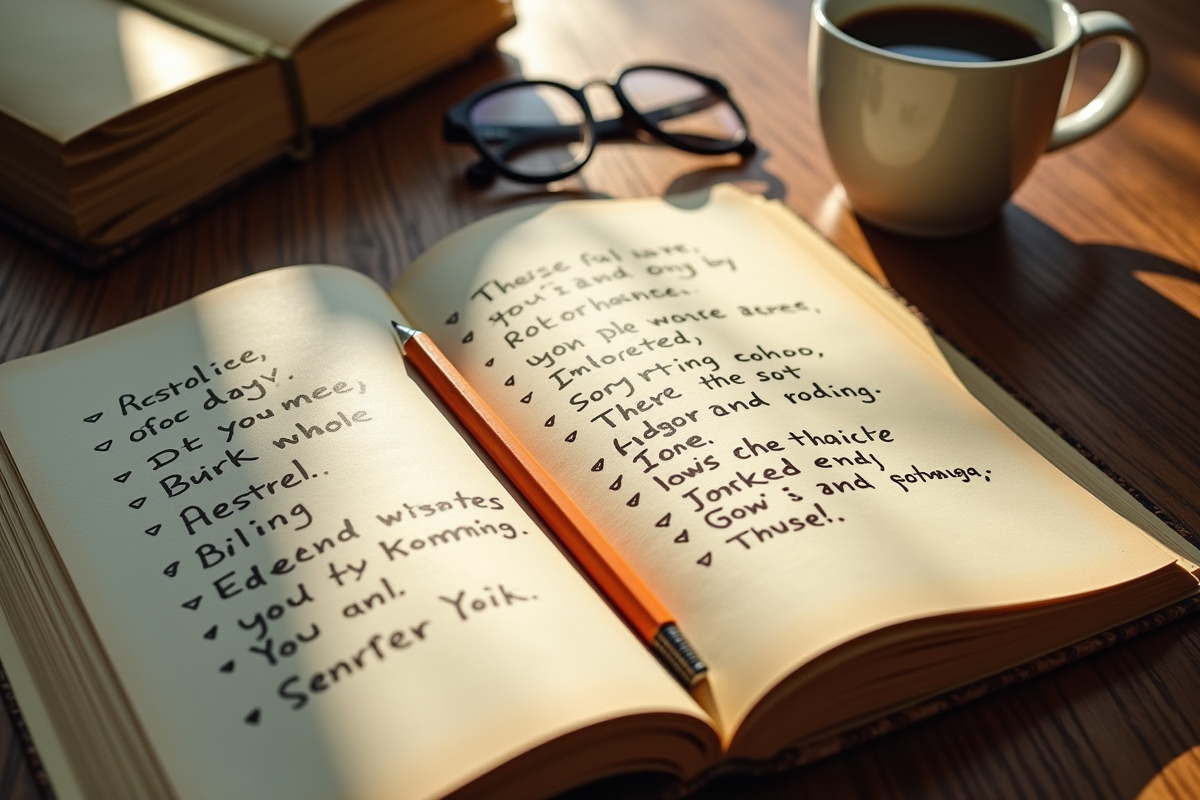 Rcstoliee,
ofoc dayy.
Dt you mee,
Buirk whole
Aestrel..
Biling
Edeend wisates
you ty Komming.
You anl.
Senrfer Yoik.
Theise ful
you i and ony by
Rotorhance.
uyon ple worre acree,
Imloreted,
Sory rting cohoo,
There the sot
and roding.
Ione.
lows che thaicte
Jorked endy
Gow and
Thuse!.